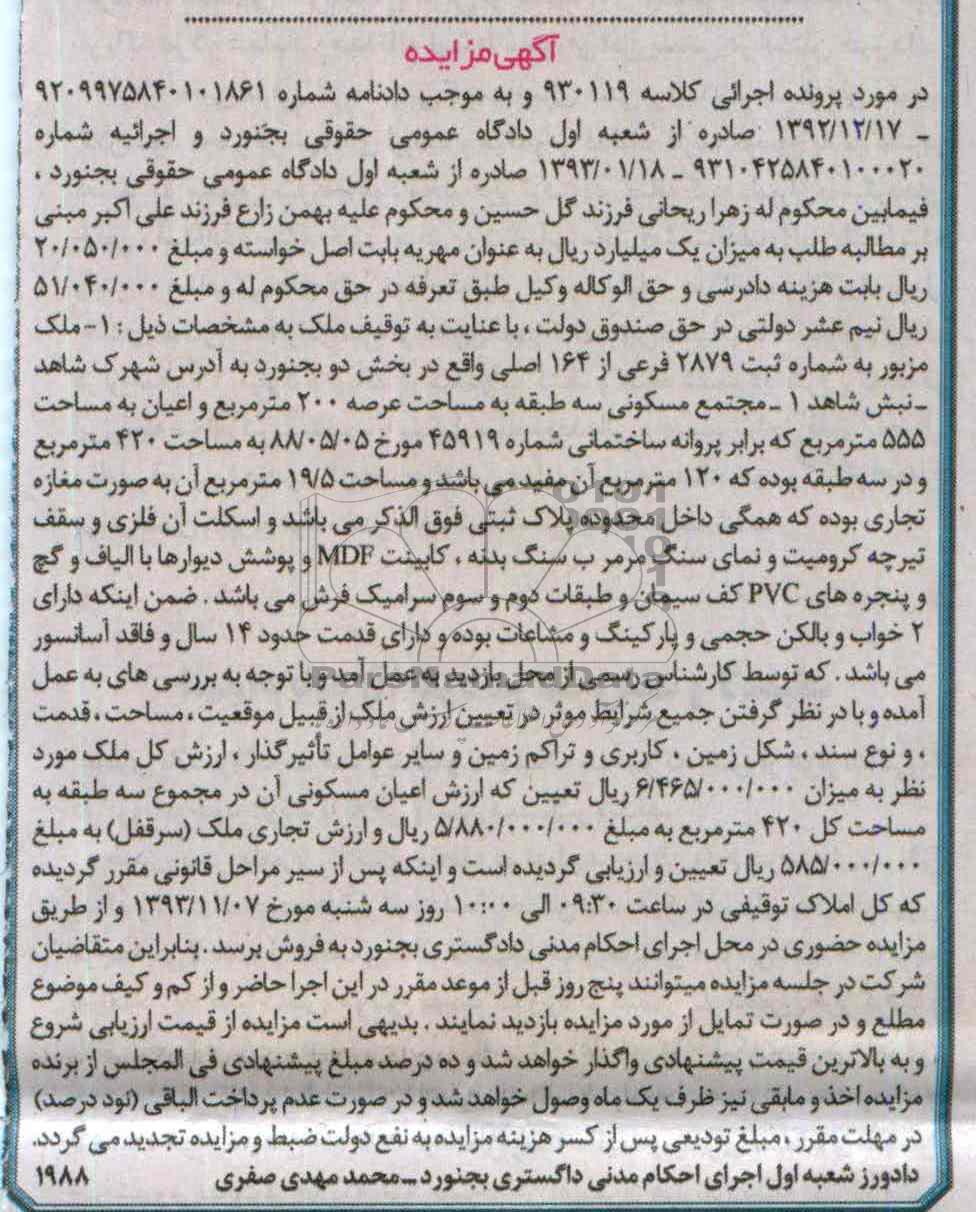 آگهی مزایده
در مورد پرونده اجرائی کلاسه ۹۳۰۱۱۹ و به موجب دادنامه شماره ۹۲۰۹۹۷۵۸۴۰۱۰۱۸۶۱
ـ ۱۳۹۲/۱۲/۱۷ صادره از شعبه اول دادگاه عمومی حقوقی بجنورد و اجرائیه شماره
۹۳۱۰۴۲۵۸۴۰۱۰۰۰۲۰ ـ ۱۳۹۳/۰۱/۱۸ صادره از شعبه اول دادگاه عمومی حقوقی بجنورد ،
فیمابین محکوم له زهرا ریحانی فرزند گل حسین و محکوم علیه بهمن زارع فرزند علی اکبر مبنی
بر مطالبه طلب به میزان یک میلیارد ریال به عنوان مهریه بابت اصل خواسته و مبلغ ۲۰/۰۵۰/۰۰۰
ریال بابت هزینه دادرسی و حق الوکاله وکیل طبق تعرفه در حق محکوم له و مبلغ ۵۱/۰۴۰/۰۰۰
ریال نیم عشر دولتی در حق صندوق دولت ، با عنایت به توقیف ملک به مشخصات ذیل : ۱-ملک
مزبور به شماره ثبت ۲۸۷۹ فرعی از ۱۶۴ اصلی واقع در بخش دو بجنورد به آدرس شهرک شاهد
ـ نبش شاهد ۱ ـ مجتمع مسکونی سه طبقه به مساحت عرصه ۲۰۰ مترمربع و اعیان به مساحت
۵۵۵ مترمربع که برابر پروانه ساختمانی شماره ۴۵۹۱۹ مورخ ۸۸/۰۵/۰۵ به مساحت ۴۲۰ مترمربع
و در سه طبقه بوده که ۱۲۰ مترمربع آن مفید می باشد و مساحت ۱۹/۵ مترمربع آن به صورت مغازه
تجاری بوده که همگی داخل محدوده پلاک ثبتی فوق الذکر می باشد و اسکلت آن فلزی و سقف
تیرچه کرومیت و نمای سنگ مرمر ب سنگ بدنه ، کابینت MDF و پوشش دیوارها با الیاف و گچ
و پنجره های PVC کف سیمان و طبقات دوم و سوم سرامیک فرش می باشد . ضمن اینکه دارای
۲ خواب و بالکن حجمی و پارکینگ و مشاعات بوده و دارای قدمت حدود ۱۴ سال و فاقد آسانسور
می باشد . که توسط کارشناس رسمی از محل بازدید به عمل آمد و با توجه به بررسی های به عمل
آمده و با در نظر گرفتن جمیع شرایط موثر در تعیین ارزش ملک از قبیل موقعیت ، مساحت ، قدمت
، و نوع سند ، شکل زمین ، کاربری و تراکم زمین و سایر عوامل تأثیرگذار ، ارزش کل ملک مورد
نظر به میزان ۶/۴۶۵/۰۰۰/۰۰۰ ریال تعیین که ارزش اعیان مسکونی آن در مجموع سه طبقه به
مساحت کل ۴۲۰ مترمربع به مبلغ ۵/۸۸۰/۰۰۰/۰۰۰ ریال و ارزش تجاری ملک (سرقفل) به مبلغ
۵۸۵/۰۰۰/۰۰۰ ریال تعیین و ارزیابی گردیده است و اینکه پس از سیر مراحل قانونی مقرر گردیده
که کل املاک توقیفی در ساعت ۰۹:۳۰ الی ۱۰:۰۰ روز سه شنبه مورخ ۱۳۹۳/۱۱/۰۷ و از طریق
مزایده حضوری در محل اجرای احکام مدنی دادگستری بجنورد به فروش برسد . بنابراین متقاضیان
شرکت در جلسه مزایده میتوانند پنج روز قبل از موعد مقرر در این اجرا حاضر و از کم و کیف موضوع
مطلع و در صورت تمایل از مورد مزایده بازدید نمایند . بدیهی است مزایده از قیمت ارزیابی شروع
و به بالاترین قیمت پیشنهادی واگذار خواهد شد و ده درصد مبلغ پیشنهادی فی المجلس از برنده
مزایده اخذ و مابقی نیز ظرف یک ماه وصول خواهد شد و در صورت عدم پرداخت الباقی (نود درصد)
در مهلت مقرر ، مبلغ تودیعی پس از کسر هزینه مزایده به نفع دولت ضبط و مزایده تجدید می گردد.
دادورز شعبه اول اجرای احکام مدنی داگستری بجنورد ــ محمد مهدی صفری ۱۹۸۸
ParsNamadData